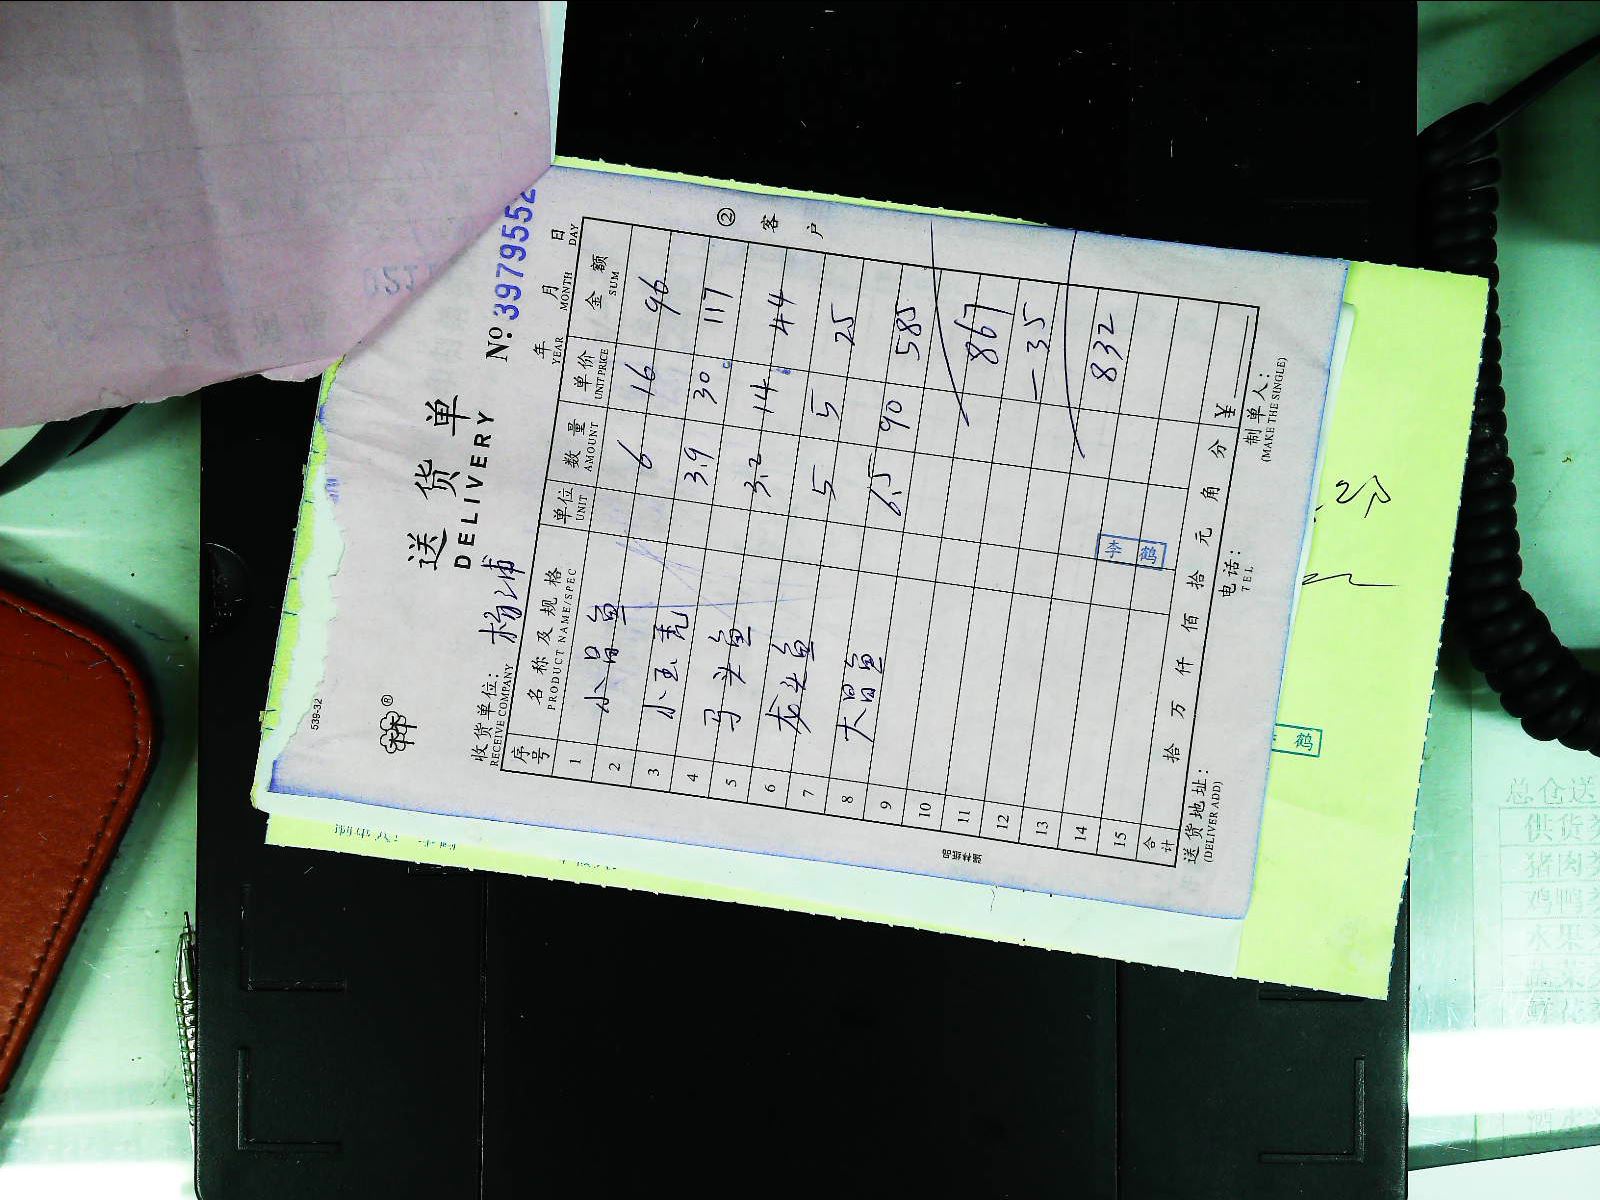 539-32
送货单
DELIVERY
№ 3979552
收货单位： 杨浦
RECEIVE COMPANY
年 月 日
YEAR MONTH DAY
序号 名称及规格 单位 数量 单价 金额
PRODUCT NAME/SPEC UNIT AMOUNT UNIT PRICE SUM
1
2 小昌鱼 6 16 96
3 小玉秃 3.9 30 117
4
5 马头鱼 3.2 14 44
6 龙头鱼 5 5 25
7
8 大昌鱼 6.5 90 585
9
10 867
11
12 -35
13
14 832
15
合计 拾 万 仟 佰 拾 元 角 分 ¥
送货地址： 电话： 制单人：
(DELIVER ADD) TEL (MAKE THE SINGLE)
② 客户
李鹤
鹤
总仓送
供货类
猪肉类
鸡鸭类
水果类
蔬菜类
鲜花类
酒水